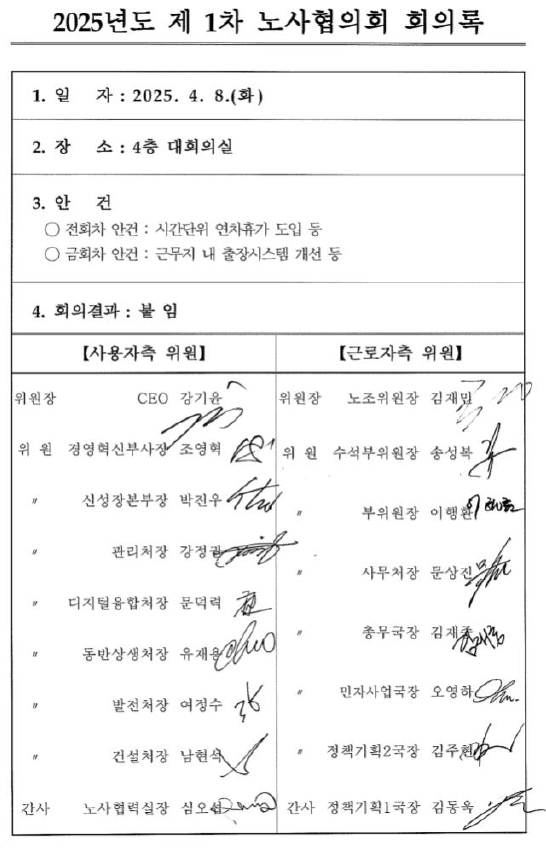 2025년도 제 1차 노사협의회 회의록
1. 일 자 : 2025. 4. 8.(화)
2. 장 소 : 4층 대회의실
3. 안 건
○ 전회차 안건 : 시간단위 연차휴가 도입 등
○ 금회차 안건 : 근무지 내 출장시스템 개선 등
4. 회의결과 : 붙 임
【사용자측 위원】
위원장 CEO 강기윤
위 원 경영혁신부사장 조영혁
〃 신성장본부장 박진우
〃 관리처장 강정권
〃 디지털융합처장 문덕력
〃 동반상생처장 유재용
〃 발전처장 여정수
〃 건설처장 남현석
간사 노사협력실장 심오섭
【근로자측 위원】
위원장 노조위원장 김재민
위 원 수석부위원장 송성복
〃 부위원장 이행환
〃 사무처장 문상진
〃 총무국장 김재종
〃 민자사업국장 오영하
〃 정책기획2국장 김주현
간사 정책기획1국장 김동욱